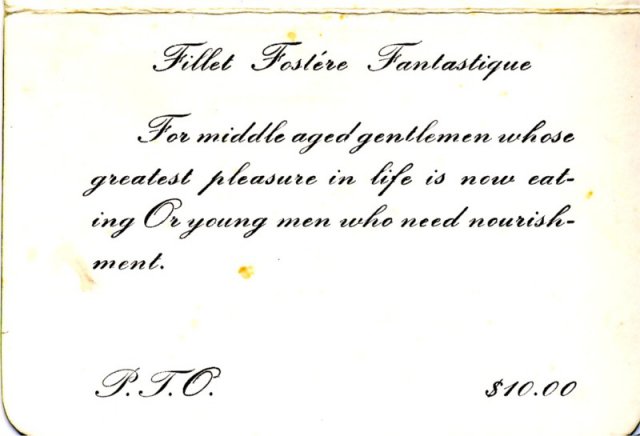 Fillet Fostére Fantastique
For middle aged gentlemen whose
greatest pleasure in life is now eat-
ing Or young men who need nourish-
ment.
P.T.O. $10.00